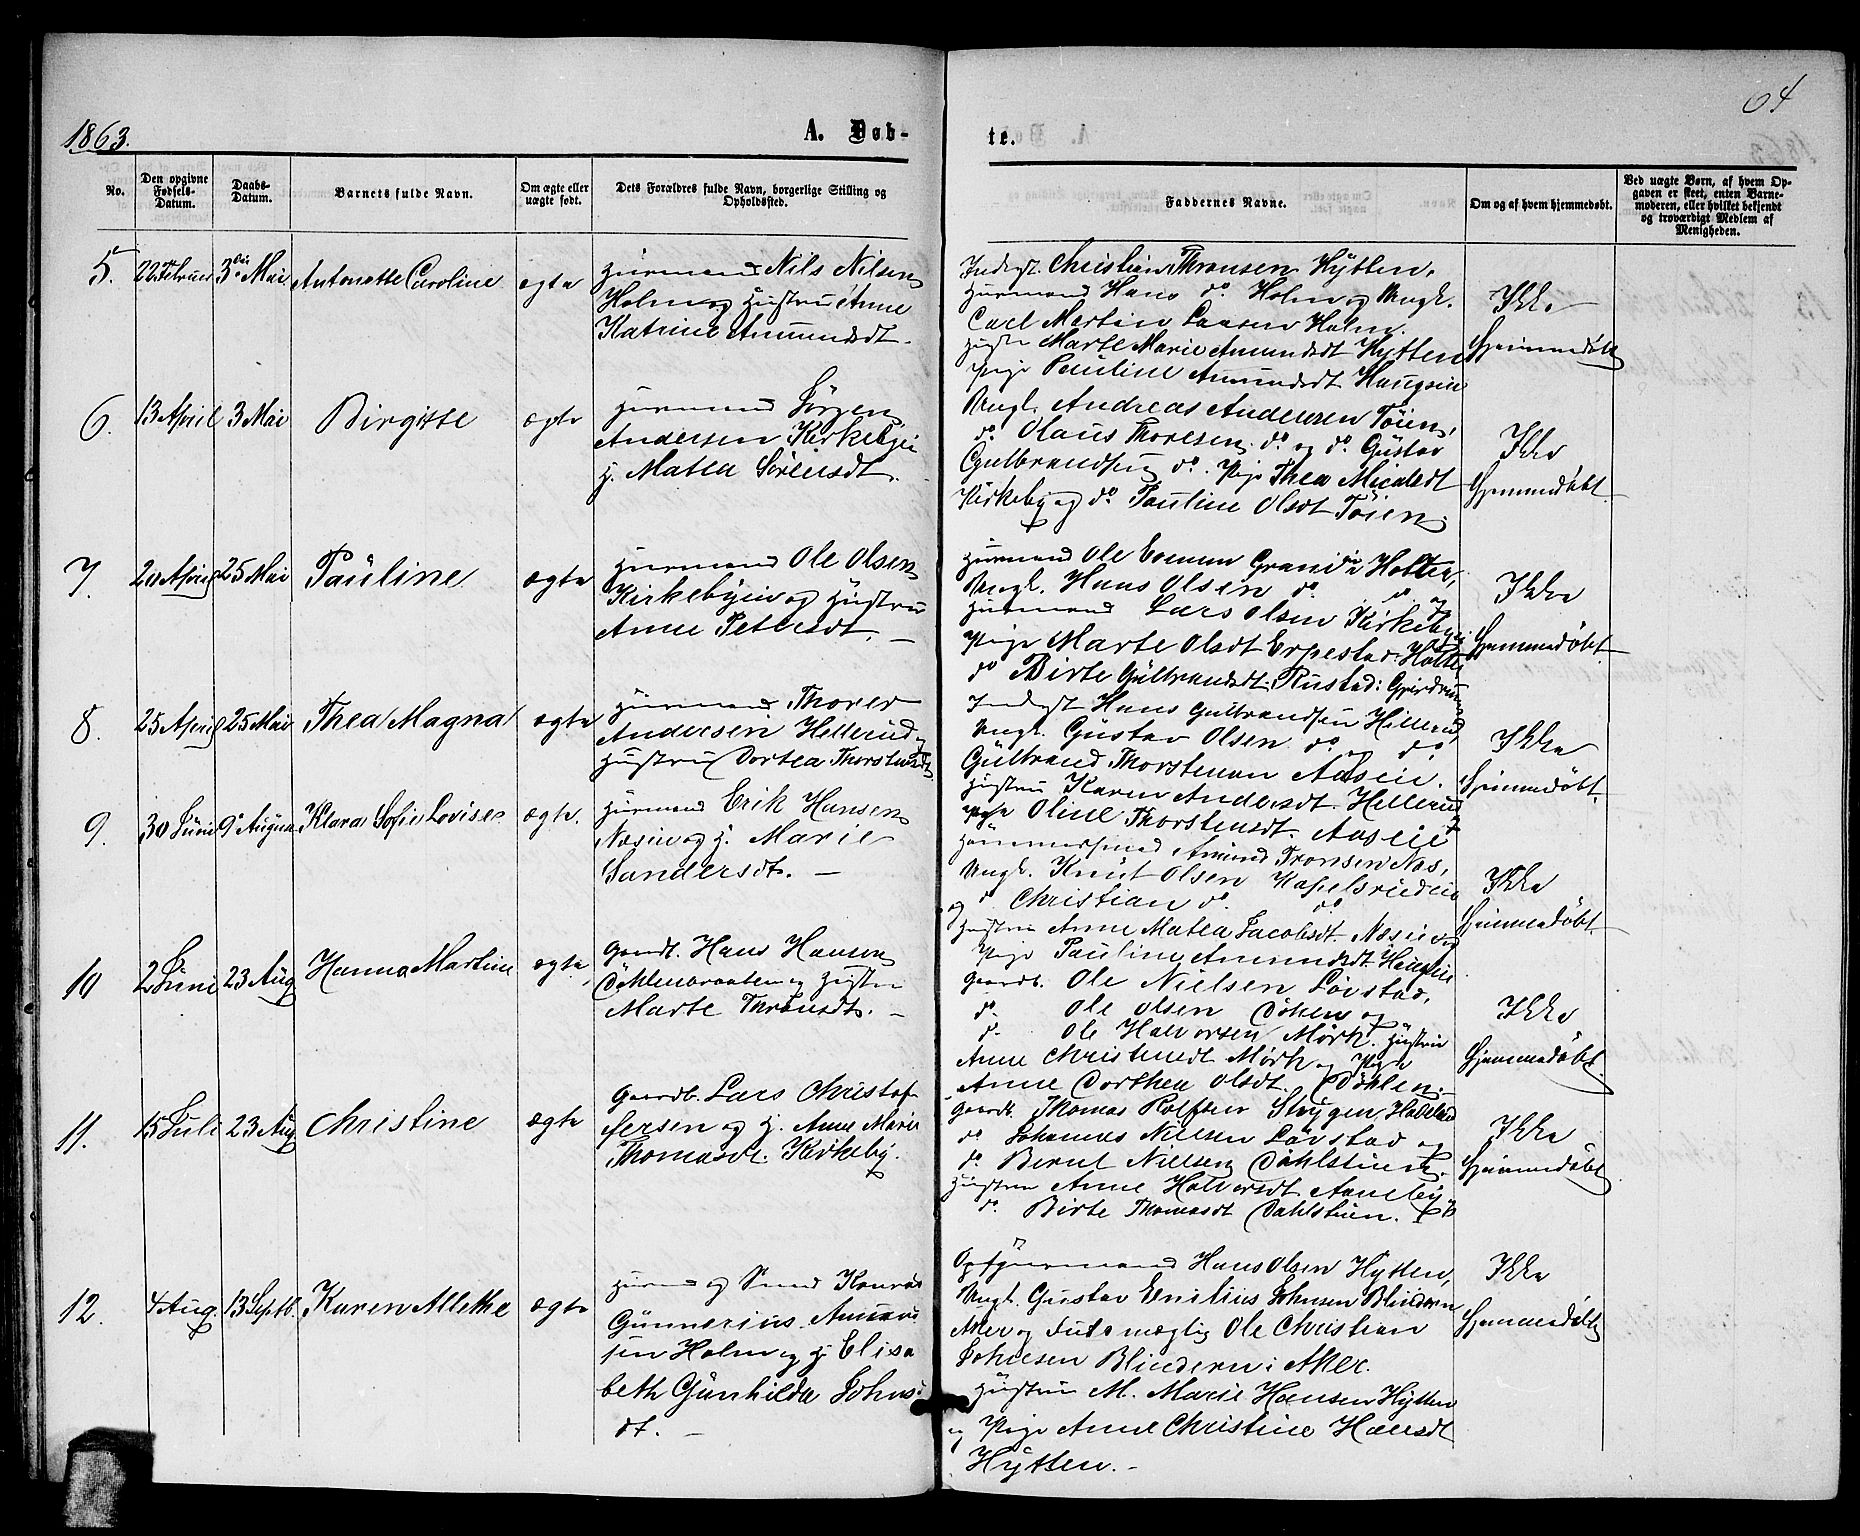 1863.
A. Døb-
te.
64
No.
Den opgivne Fødsels-Datum.
Daabs-Datum.
Barnets fulde Navn.
Om ægte eller uægte født.
Dets Forældres fulde Navn, borgerlige Stilling og Opholdssted.
Faddernes Navne.
Om og af hvem hjemmedøbt.
Ved uægte Børn, af hvem Op-
gaven er skeet, enten Barne-
moderen, eller hvilket bekjendt
og troværdigt Medlem af
Menigheden.
5. 22 Februar 3die Mai Antonette Caroline ægte
Huusmand Nils Nilsen
Holm og Hustru Anne
Katrine Amundsdt.
Inderst. Christian Thronsen Hytten,
Huusmand Hans do. Holm og Ungk.
Carl Martin Larsen Holm.
Hustru Marte Marie Amundsdt Hytten
Pige Pauline Amundsdt Haugeie
Ikke
Hjemmedøbt
6. 13 April 3 Mai Birgitte ægte
Huusmand Jörgen
Andersen Kirkebyeie
H. Matea Sörensdt.
Ungk. Andreas Andersen Töien,
do. Olaus Thoresen do. og do. Gustav
Gulbrandsen do. Pige Thea
Kirkeby og do. Pauline Olsdt Töien.
Ikke
Hjemmedøbt.
7. 20 April 25 Mai Pauline ægte
Huusmand Ole Olsen
Kirkebyeie og Hustru
Anne Petersdt. —
Huusmand Ole
Holter,
Ungk. Hans Olsen do. og
Huusmand Lars Olsen Kirkebyeie
Pige Marte Olsdt Erpestad: Holter
do Birte Gulbrandsdt. Rustad: Gjerdrum
Ikke
Hjemmedøbt.
8. 25 April 25 Mai Thea Magna ægte
Huusmand Thorer
Andersen Hellerud og
Hustru Dortea Thorstensdt
Inderst Hans Gulbrandsen Hillerud,
Ungk. Gustav Olsen do og do
Gulbrand Thorstensen Aaseie.
Hustru Karen Andersdt. Hellerud
Pige Oline Thorstensdt. Aaseie
Ikke
Hjemmedøbt.
9. 30 Juni 9 August Klara Sofie Lovise ægte.
Huusmand Erik Hansen
Næseie og H. Marie
Sandersdt. —
Hammersmed Amund Tronsen Næs,
Ungk. Knut Olsen
do Christian do. do.
og Hustru Anne Matea Jacobsdt. Næseie og
Pige Pauline Amundsdt. Haugeie
Ikke
Hjemmedøbt.
10 2 Juni 23 Aug Hanna Martine ægte
Gaardb. Hans Hansen
Döhlenbraaten og Hustru
Marte Thronsdt. —
Gaardb. Ole Nielsen Lövstad,
do. Ole Olsen Döhlen og
do. Ole Halvorsen Mörk. Hustru
Anne Christensdt Mörk og Pige
Anne Dorthea Olsdt. Döhlen. —
Ikke
Hjemmedøbt.
11. 15 Juli 23 Aug Christine ægte
Gaardb. Lars Christof-
fersen og H. Anne Marie
Thomasdt. Kirkeby.
Gaardb. Thomas Rolfsen Stygen, Hakedal
do Johannes Nielsen Lövstad og
do. Bernt Nielsen Dahlstuen.
Hustru Anne Halvorsdt Aaneby og
do. Birte Thomasdt Dahlstuen.
Ikke
Hjemmedøbt
12. 4 Aug. 13 Septb. Karen Alethe ægte
Huusmd og Smed Konrad
Gunnerius Amund-
sen Holm og H. Elisa
beth Gunhilda Johns-
dt. —
Opsynsmand Hans Olsen Hytten,
Ungk. Gustav Emilius Johnsen Blindern
Aker og Ole Christian
Johnsen Blindern i Aker.
Hustru M. Marie Hansen Hytten
og Pige Anne Christine Hansdt
Hytten. —
Ikke
Hjemmedøbt